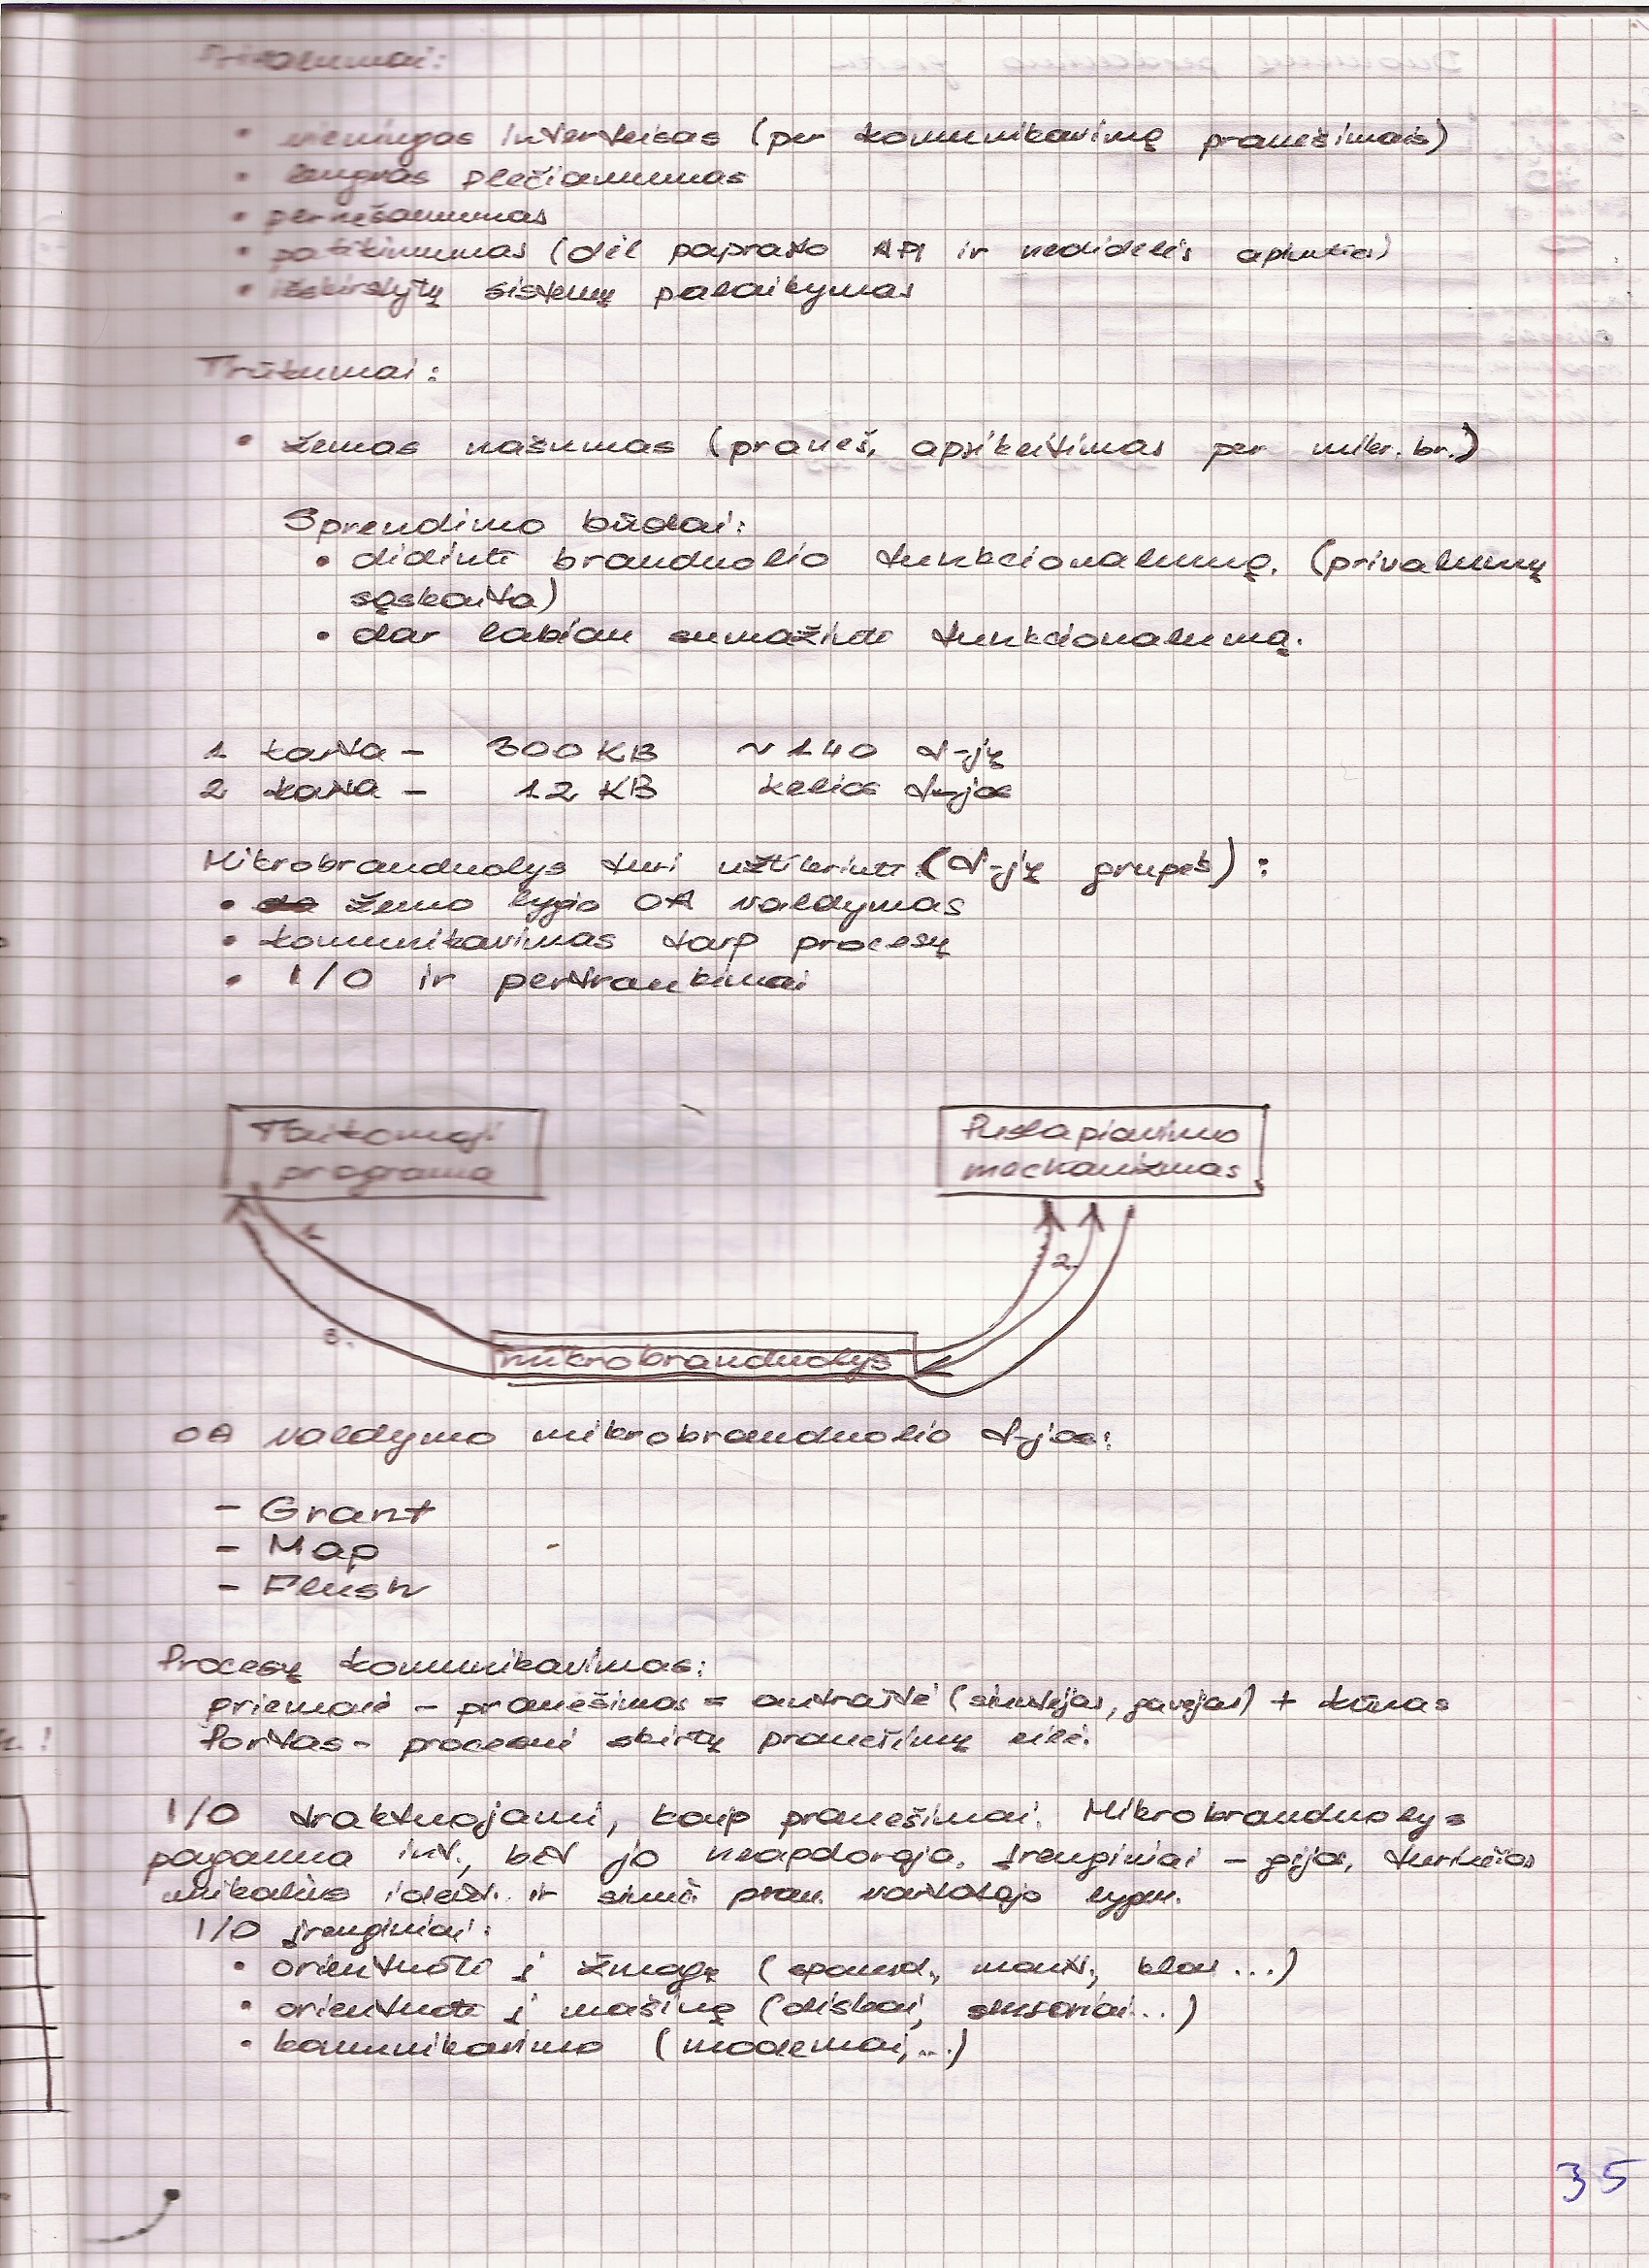 Privalumai:
• vieningas interfeisas (per komunikavimą pranešimais)
• lengvas plečiamumas
• pernešamumas
• patikimumas (dėl paprasto API ir nedidelės apimties)
• išskirstytų sistemų palaikymas
Trūkumai:
• žemas našumas (praneš. apsikeitimas per mikr. br.)
Sprendimo būdai:
• didinti branduolio funkcionalumą. (privalumų
sąskaita)
• dar labiau sumažinti funkcionalumą.
1 karta - 300 KB ~140 f-jų
2 karta - 12 KB kelios f-jos
Mikrobranduolys turi užtikrinti (f-jų grupės):
• žemo lygio OA valdymas
• komunikavimas tarp procesų
• I/O ir pertraukimai
Taikomoji
programa
Puslapiavimo
mechanizmas
1.
2.
3.
mikrobranduolys
OA valdymo mikrobranduolio f-jos:
- Grant
- Map
- Flush
Procesų komunikavimas:
priemonė - pranešimas = antraštė (siuntėjas, gavėjas) + kūnas
Portas - procesui skirtų pranešimų eilė.
I/O traktuojami, kaip pranešimai. Mikrobranduolys
pagauna int., bet jo neapdoroja. Įrenginiai - gijos, turinčios
unikalius ident. ir siunč. pran. vartotojo lygiu.
I/O įrenginiai:
• orientuoti į žmogų (spausd., monit., klav...)
• orientuoti į mašiną (diskai, sensoriai...)
• komunikavimo (modemai,...)
35